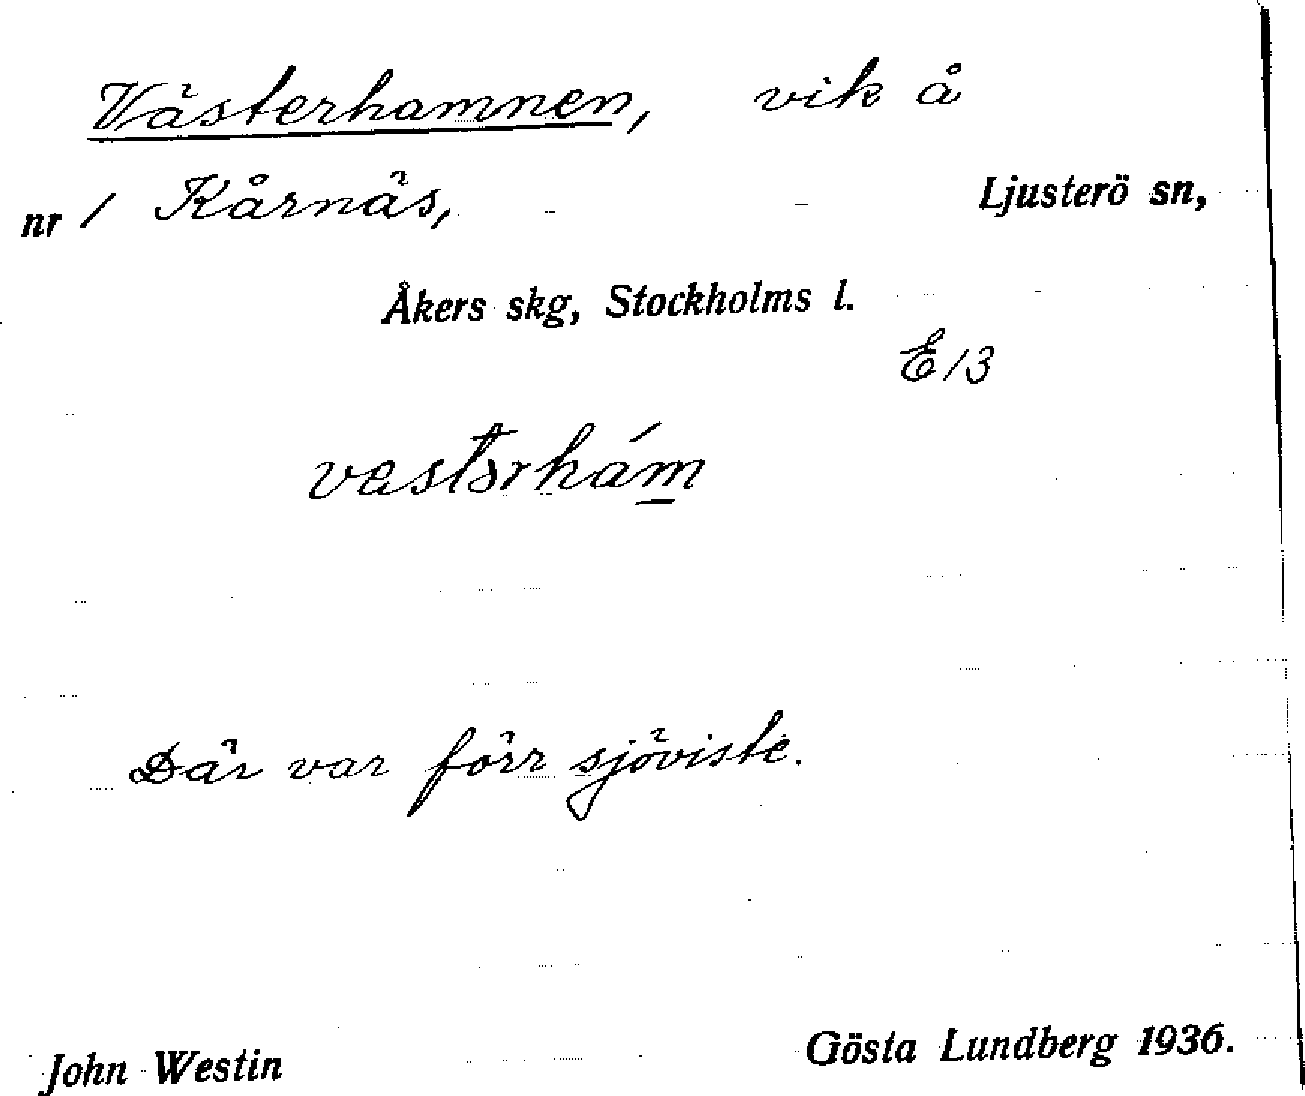 Västerhamnen, vik å
nr 1 Kårnäs, Ljusterö sn,
Åkers skg, Stockholms l.
E 13
vestərhám̲
Där var förr sjöviste.
John Westin Gösta Lundberg 1936.